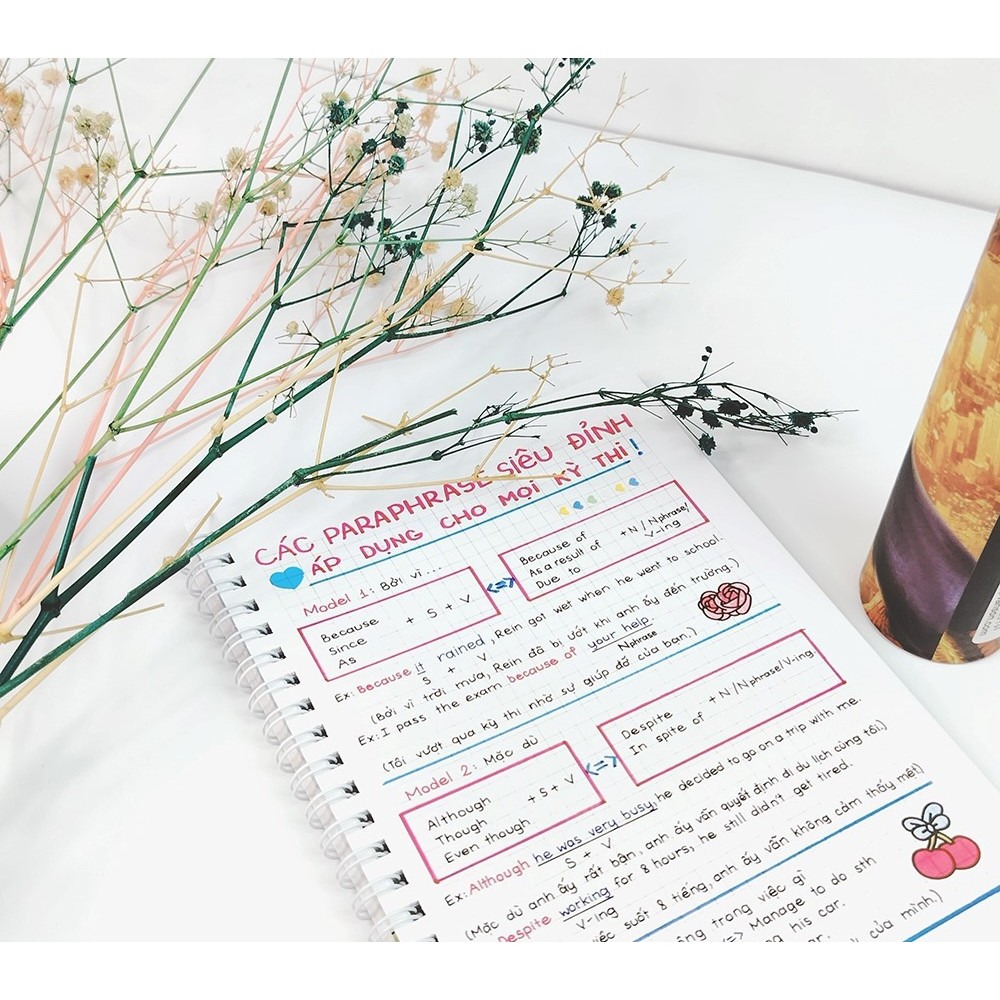 CÁC PARAPHRASE SIÊU ĐỈNH
ÁP DỤNG CHO MỌI KỲ THI!
Model 1: Bởi vì ...
Because
Since
As
+ S + V
<=>
Because of
As a result of
Due to
+N / Nphrase/
V-ing
Ex: Because it rained, Rein got wet when he went to school.
S + V
(Bởi vì trời mưa, Rein đã bị ướt khi anh ấy đến trường.)
Ex: I pass the exam because of your help.
Nphrase
(Tôi vượt qua kỳ thi nhờ sự giúp đỡ của bạn.)
Model 2: Mặc dù
Although
Though
Even though
+ S + V
<=>
Despite
In spite of
+ N /Nphrase/V-ing.
Ex: Although he was very busy, he decided to go on a trip with me.
S + V
(Mặc dù anh ấy rất bận, anh ấy vẫn quyết định đi du lịch cùng tôi.)
Despite working for 8 hours, he still didn't get tired.
V-ing
việc suốt 8 tiếng, anh ấy vẫn không cảm thấy mệt)
công trong việc gì
<=> Manage to do sth
his car.
car.
của mình.)